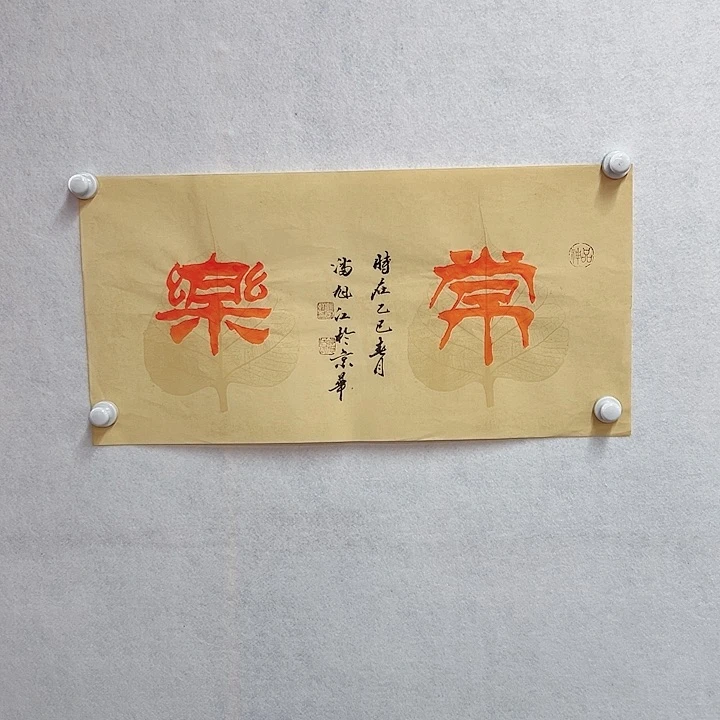 常
時在乙巳春月
潘旭江於京華
樂